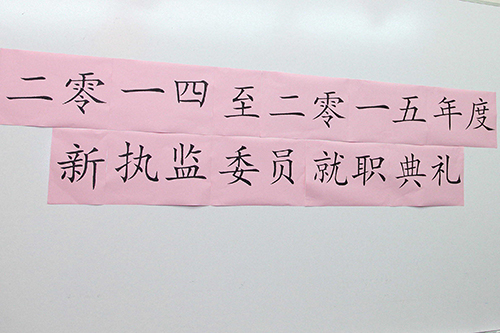 二零一四至二零一五年度
新执监委员就职典礼